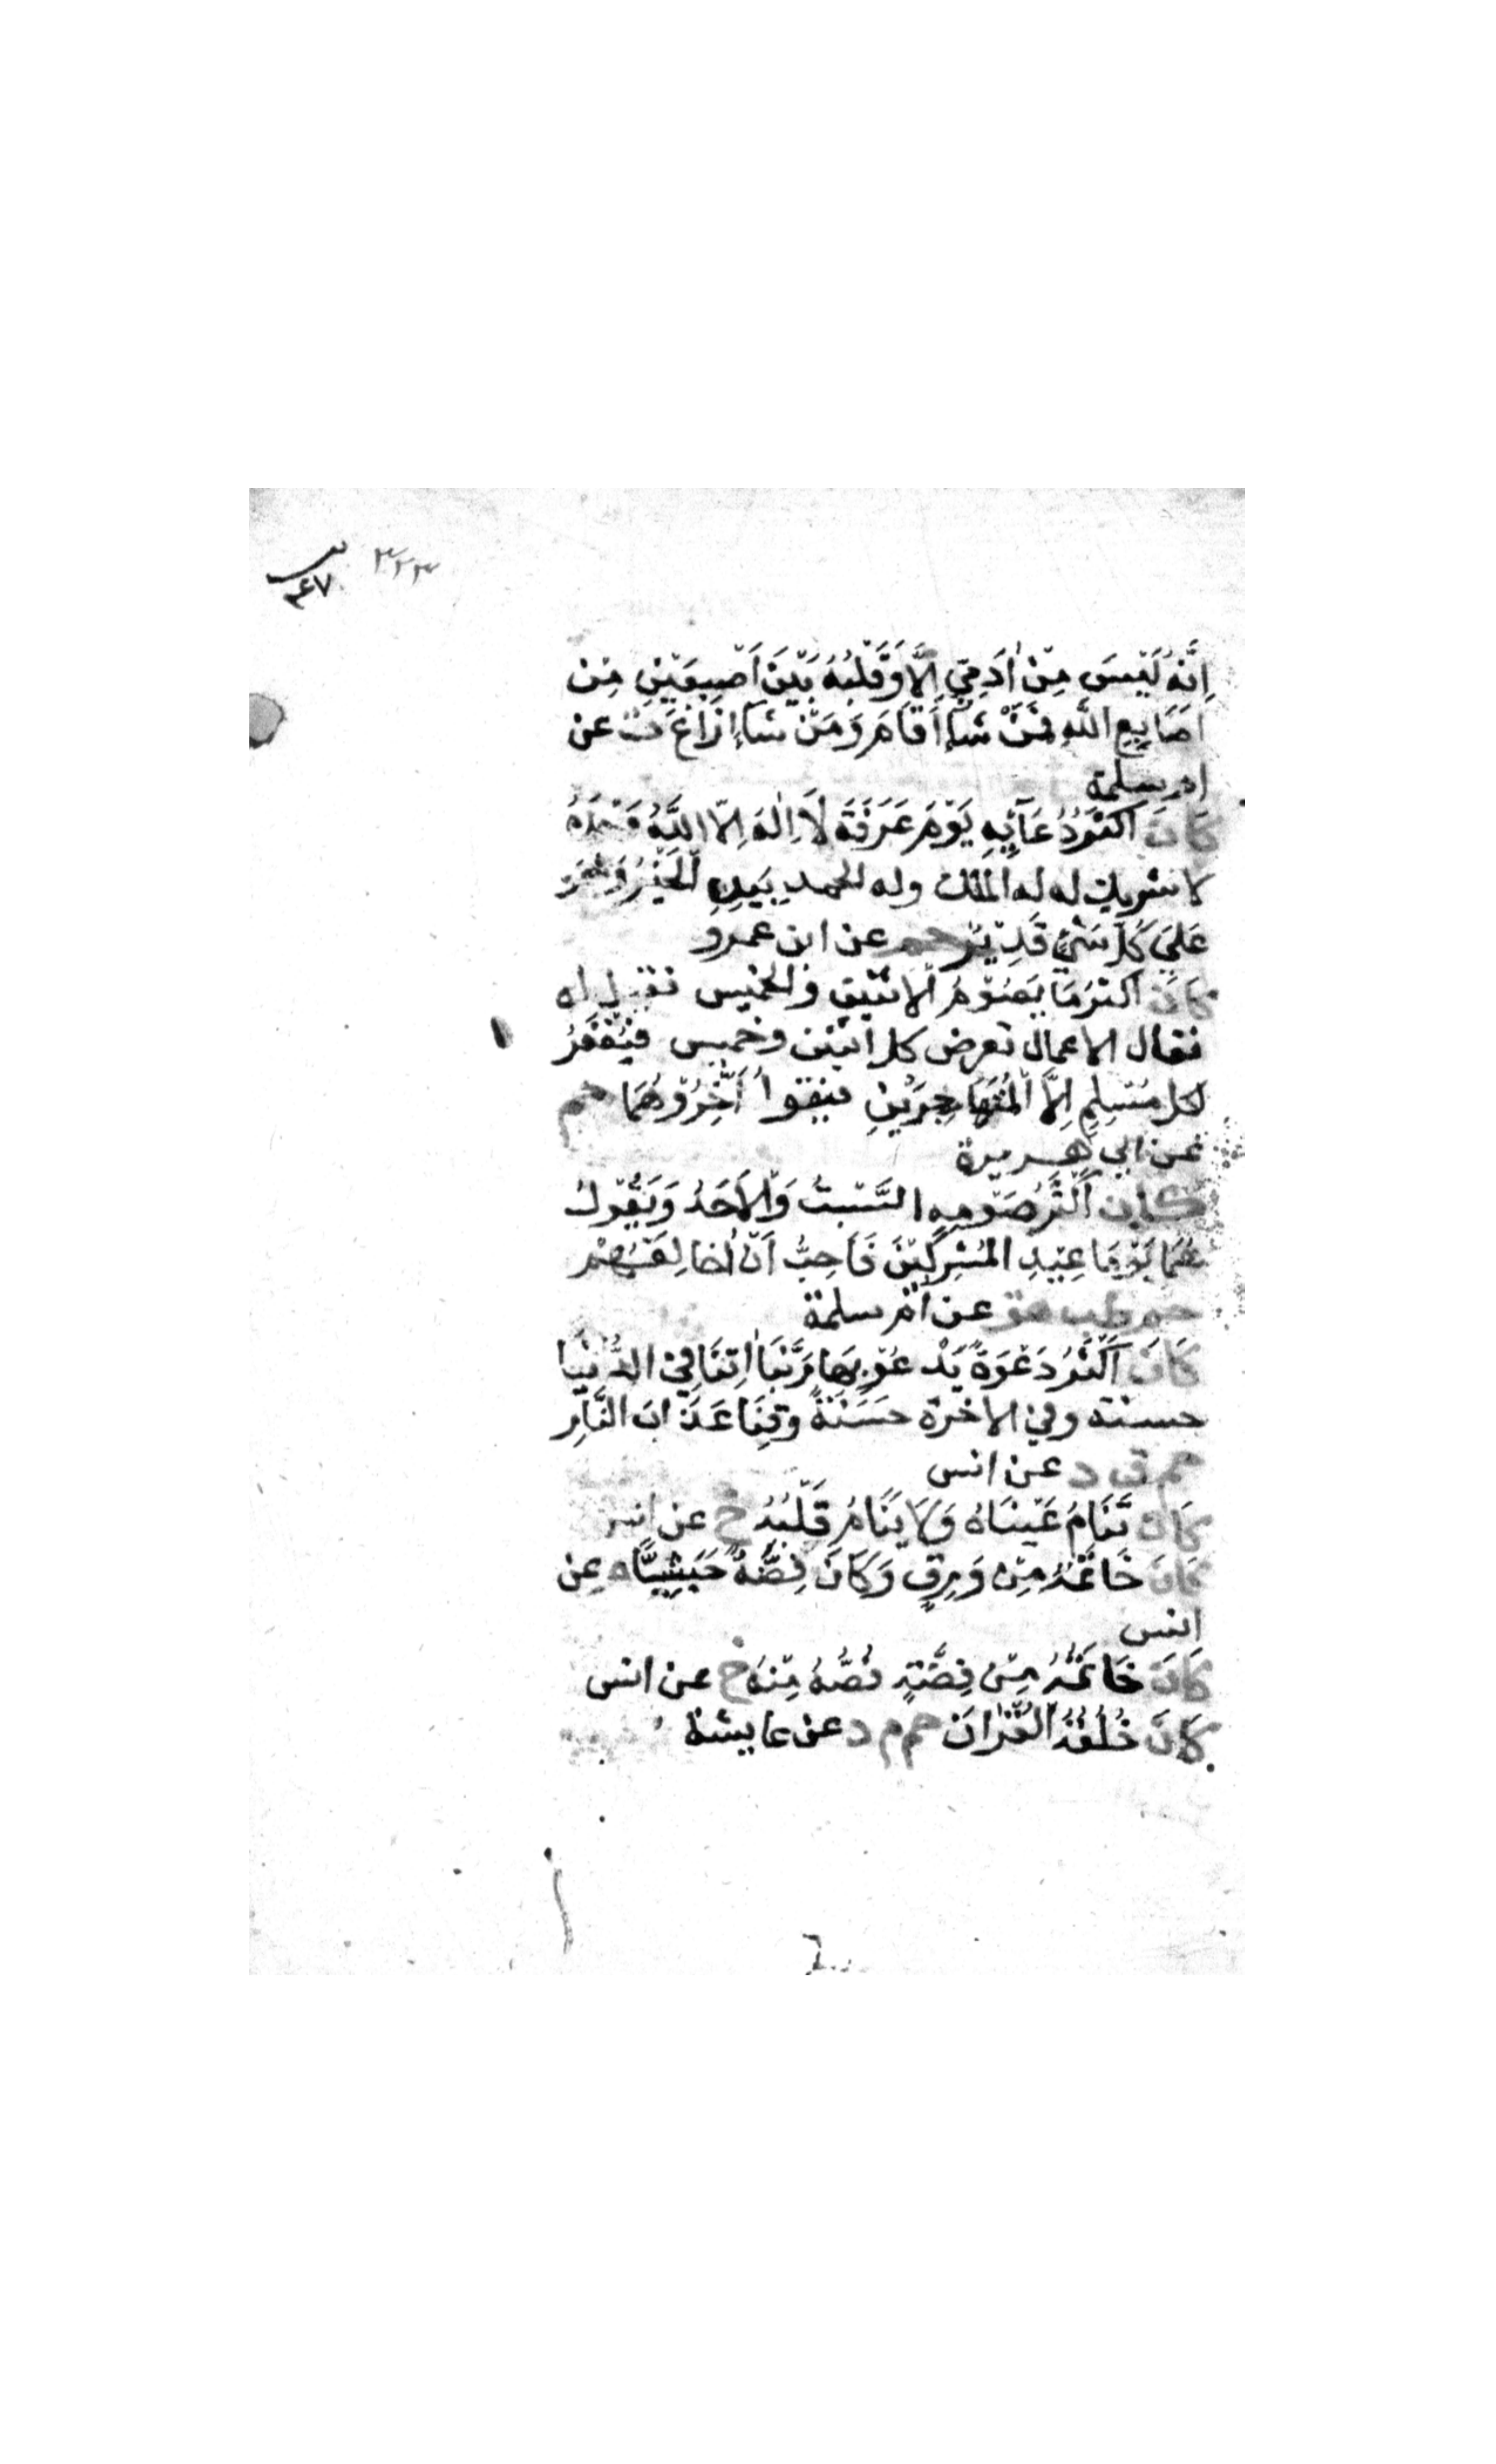 ٣٣٣
٤٧
اِنَّهُ لَيْسَ مِنْ اٰدَمِيٍّ اِلَّا وَقَلْبُهُ بَيْنَ اَصْبِعَيْنِ مِنْ
اَصَابِعِ اللّٰهِ فَمَنْ شَآءَ اَقَامَ وَمَنْ شَآءَ اِزَاغَ ت عن
ام سلمة
كَانَ اَكْثَرُ دُعَآئِهِ يَوْمَ عَرَفَةَ لَا اِلٰهَ اِلَّا اللّٰهُ وَحْدَهُ
لا شريك له له الملك وله الحمد بِيَدِهِ الْخَيْرُ وَهُوَ
عَلىَ كُلِّ شَيْءٍ قَدِيْرٌ حم عن ابن عمرو
كَانَ اكْثَرُ مَا يَصُوْمُ الاثْنَيْنِ والخميس فقيل له
فقال الاعمال تعرض كل اثنين وخميس فَيُغْفَرُ
لكل مُسْلِمٍ اِلَّا الْمُتَهَاجِرَيْنِ فيقول اَخِّرُوْهُمَا حم
عن ابي هريرة
كان اَكْثَرُ صَوْمِهِ السَّبْتُ وَالْاَحَدُ وَيَقُوْلُ
هُمَا يَوْمَا عِيْدِ الْمُشْرِكِيْنَ فَاُحِبُّ اَنْ اُخَالِفَهُمْ
حم طب هق عن ام سلمة
كَانَ اَكْثَرُ دَعْوَةً يَدْعُوْ بِهَا رَبَّنَا اٰتِنَا فِي الدُّنْيَا
حسنة وفي الاخرة حَسَنَةً وَقِنَا عَذَابَ النَّارِ
حم ق د عن انس
كَانَ تَنَامُ عَيْنَاهُ وَلَا يَنَامُ قَلْبُهُ خ عن انس
كَانَ خَاتَمُهُ مِنْ وَرِقٍ وَكَانَ فِصُّهُ حَبَشِيًّا م عن
انس
كَانَ خَاتَمُهُ مِنْ فِضَّةٍ فُصُّهُ مِنْهُ خ عن انس
كَانَ خُلُقُهُ الْقُرْاٰنَ حم م د عن عايشة